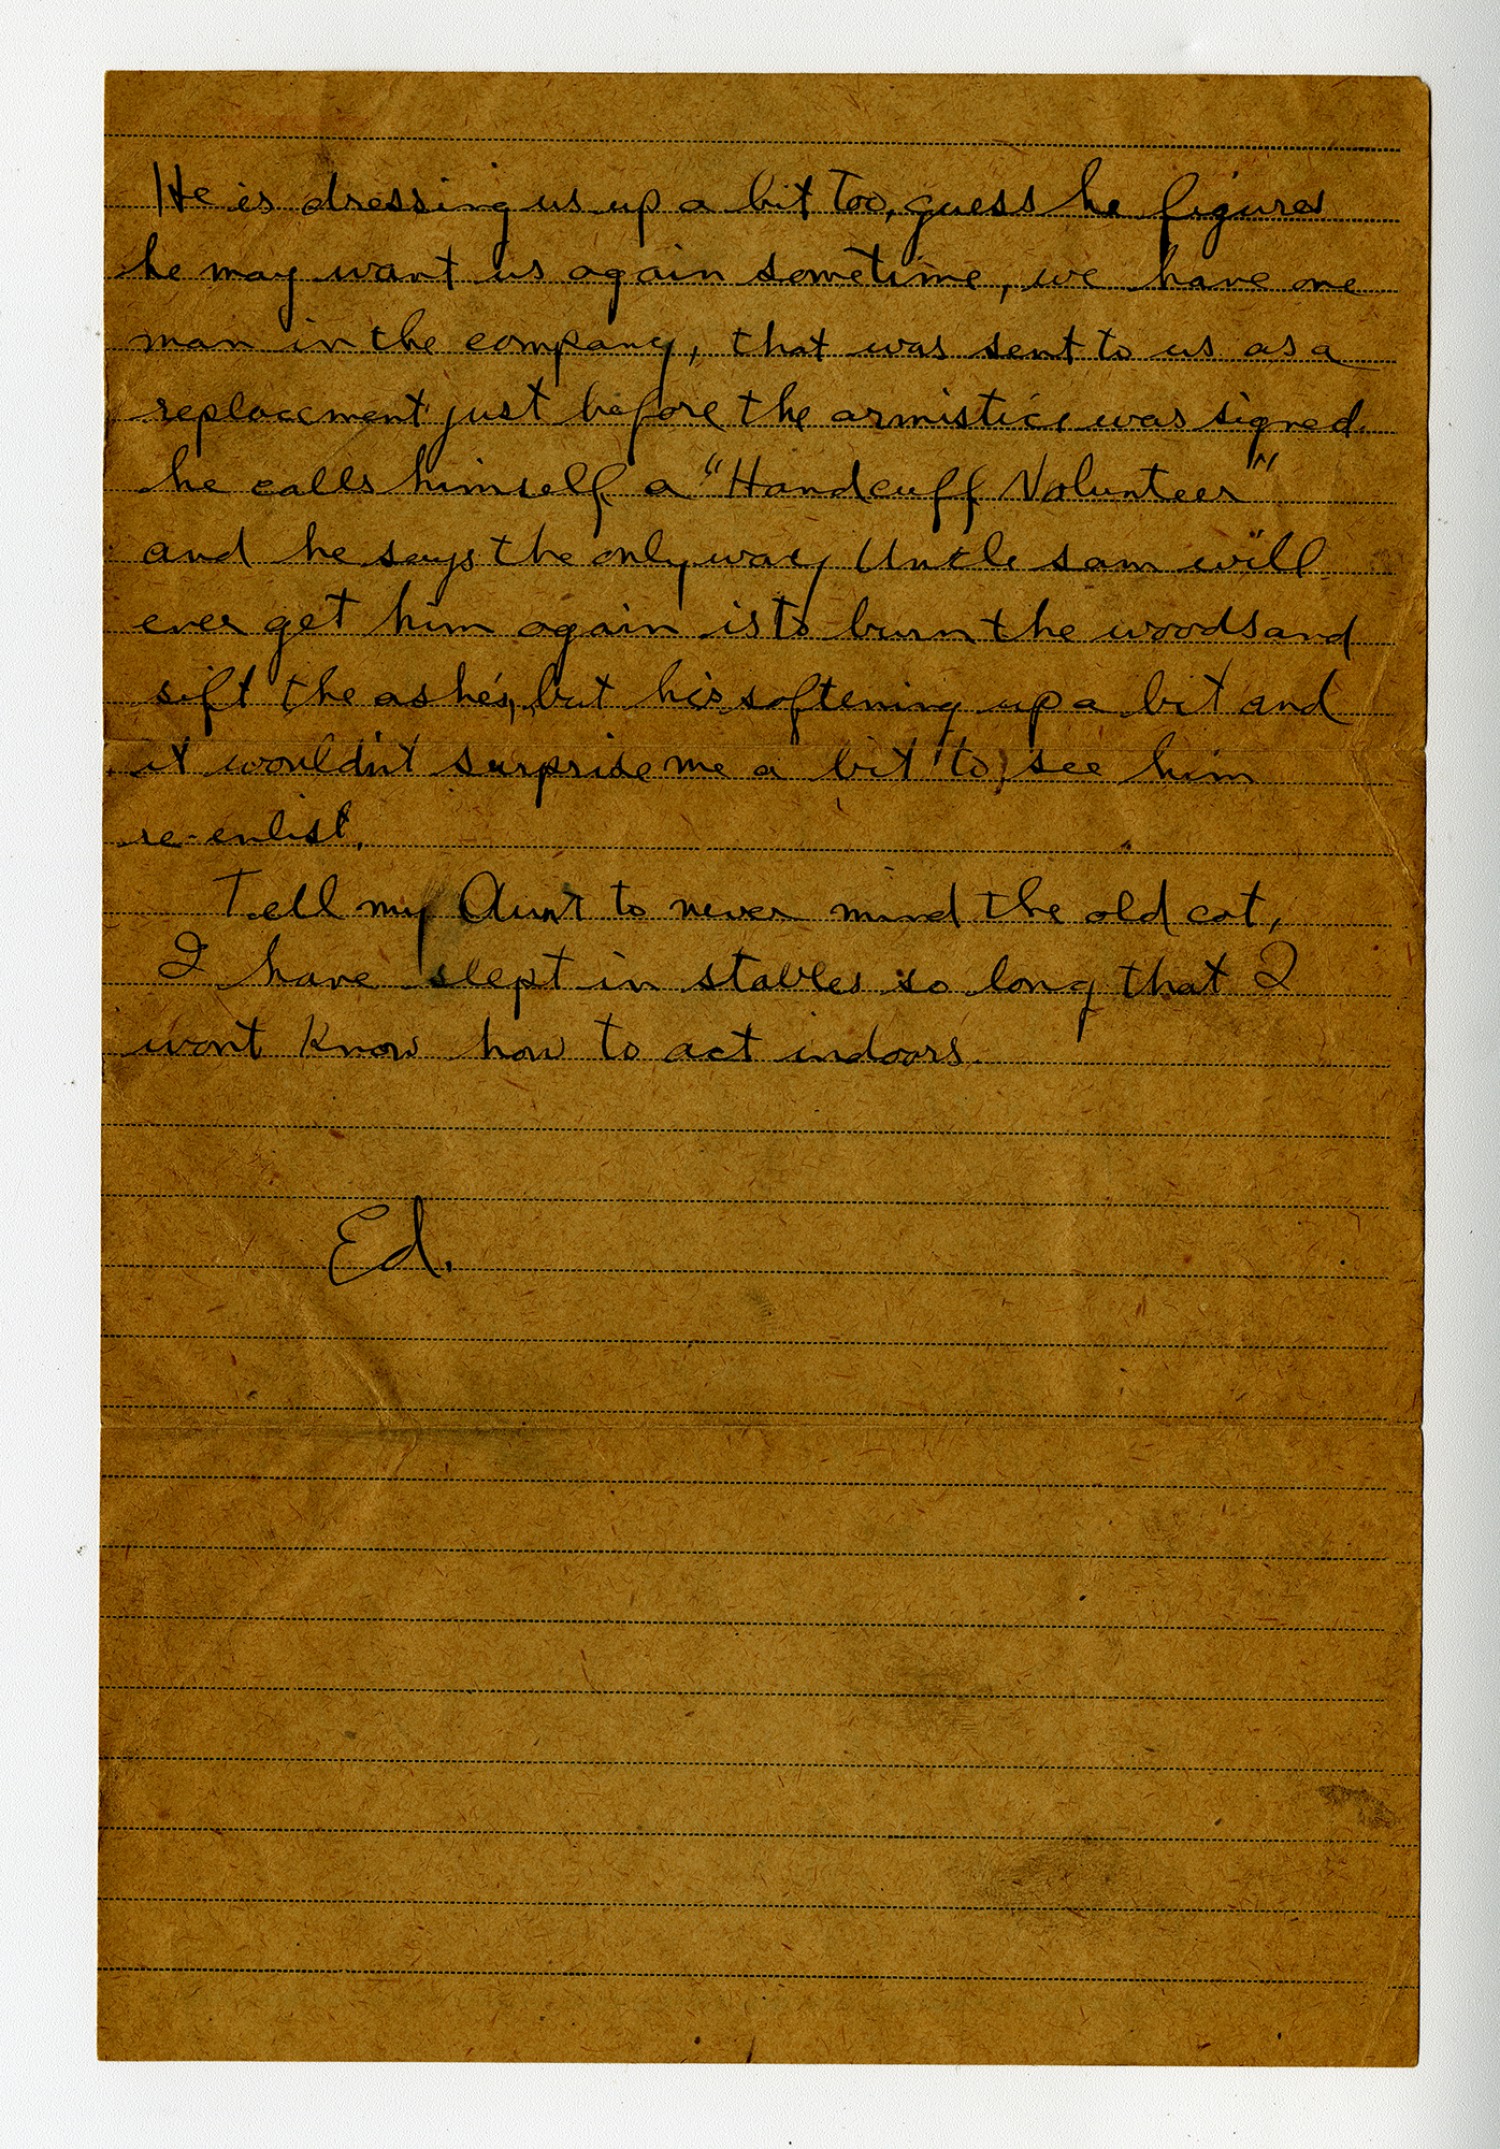 He is dressing us up a bit too, guess he figures
he may want us again sometime, we have one
man in the company, that was sent to us as a
replacement just before the armistice was signed.
he calls himself a "Handcuff Volunteer"
and he says the only way Uncle Sam will
ever get him again is to burn the woods and
sift the ashes, but his softening up a bit and
it wouldn't surprise me a bit to see him
re-enlist.
Tell my Aunt to never mind the old cot,
I have slept in stables so long that I
wont know how to act indoors.
Ed.